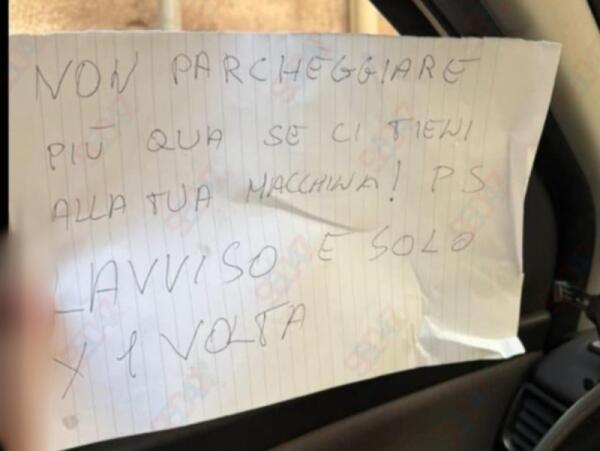 NON PARCHEGGIARE
PIÙ QUA SE CI TIENI
ALLA TUA MACCHINA! PS
L'AVVISO E SOLO
X 1 VOLTA